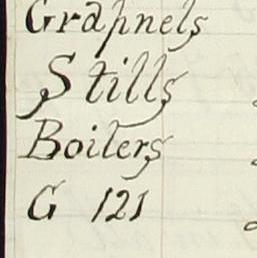 Grapnels
Stills
Boilers
G 121